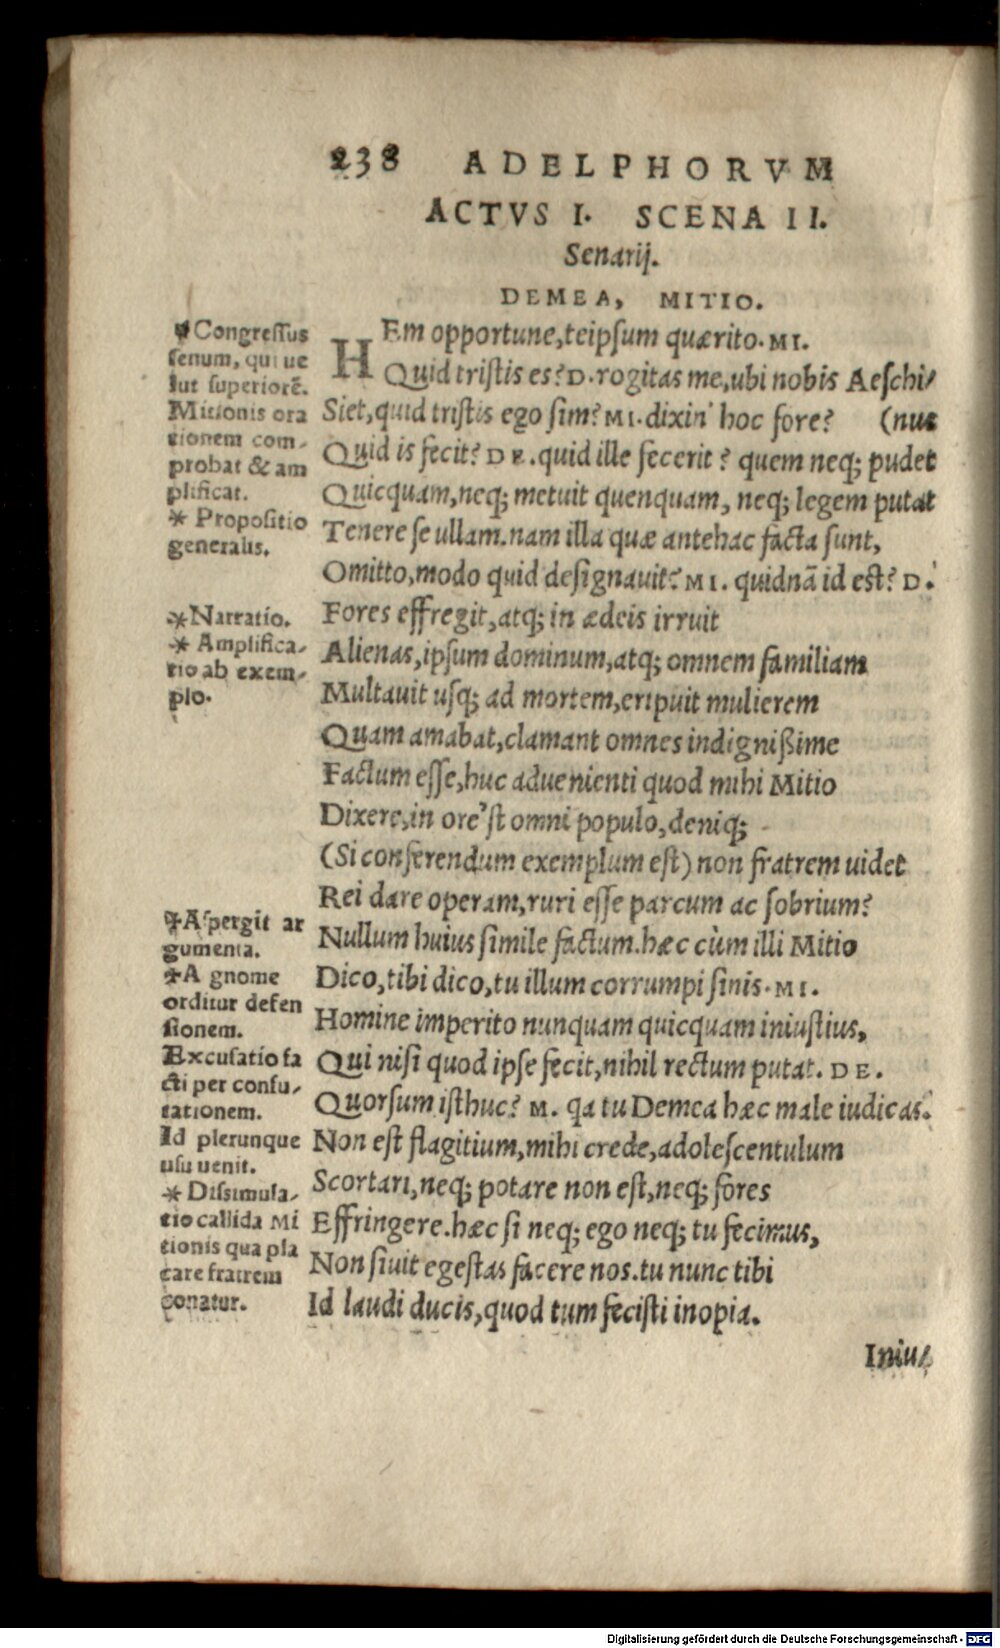 238 ADELPHORVM
ACTVS I. SCENA II.
Senarij.
DEMEA, MITIO.
HEm opportune,teipsum quærito. MI.
Quid tristis es? D. rogitas me,ubi nobis Aeschi/
Siet,quid tristis ego sim? MI. dixin' hoc fore? (nus
Quid is fecit? DE. quid ille fecerit? quem neq; pudet
Quicquam,neq; metuit quenquam, neq; legem putat
Tenere se ullam. nam illa quæ antehac facta sunt,
Omitto,modo quid designauit? MI. quidnã id est? D.
Fores effregit,atq; in ædeis irruit
Alienas,ipsum dominum,atq; omnem familiam
Multauit usq; ad mortem,eripuit mulierem
Quam amabat,clamant omnes indignißime
Factum esse,huc aduenienti quod mihi Mitio
Dixere,in ore'st omni populo,deniq;
(Si conferendum exemplum est) non fratrem uidet
Rei dare operam,ruri esse parcum ac sobrium?
Nullum huius simile factum. hæc cùm illi Mitio
Dico,tibi dico,tu illum corrumpi sinis. MI.
Homine imperito nunquam quicquam iniustius,
Qui nisi quod ipse fecit,nihil rectum putat. DE.
Quorsum isthuc? M. qa tu Demea hæc male iudicas.
Non est flagitium,mihi crede,adolescentulum
Scortari,neq; potare non est,neq; fores
Effringere. hæc si neq; ego neq; tu fecimus,
Non siuit egestas facere nos. tu nunc tibi
Id laudi ducis,quod tum fecisti inopia.
Iniu/
* Congressus
senum, qui ue
lut superiorẽ.
Mitionis ora
tionem com-
probat & am
plificat.
* Propositio
generalis.
* Narratio.
* Amplifica-
tio ab exem-
plo.
* Aspergit ar
gumenta.
* A gnome
orditur defen
sionem.
Excusatio fa
cti per confu-
tationem.
Id plerunque
usu uenit.
* Dissimula-
tio callida Mi
tionis qua pla
care fratrem
conatur.
Digitalisierung gefördert durch die Deutsche Forschungsgemeinschaft - DFG